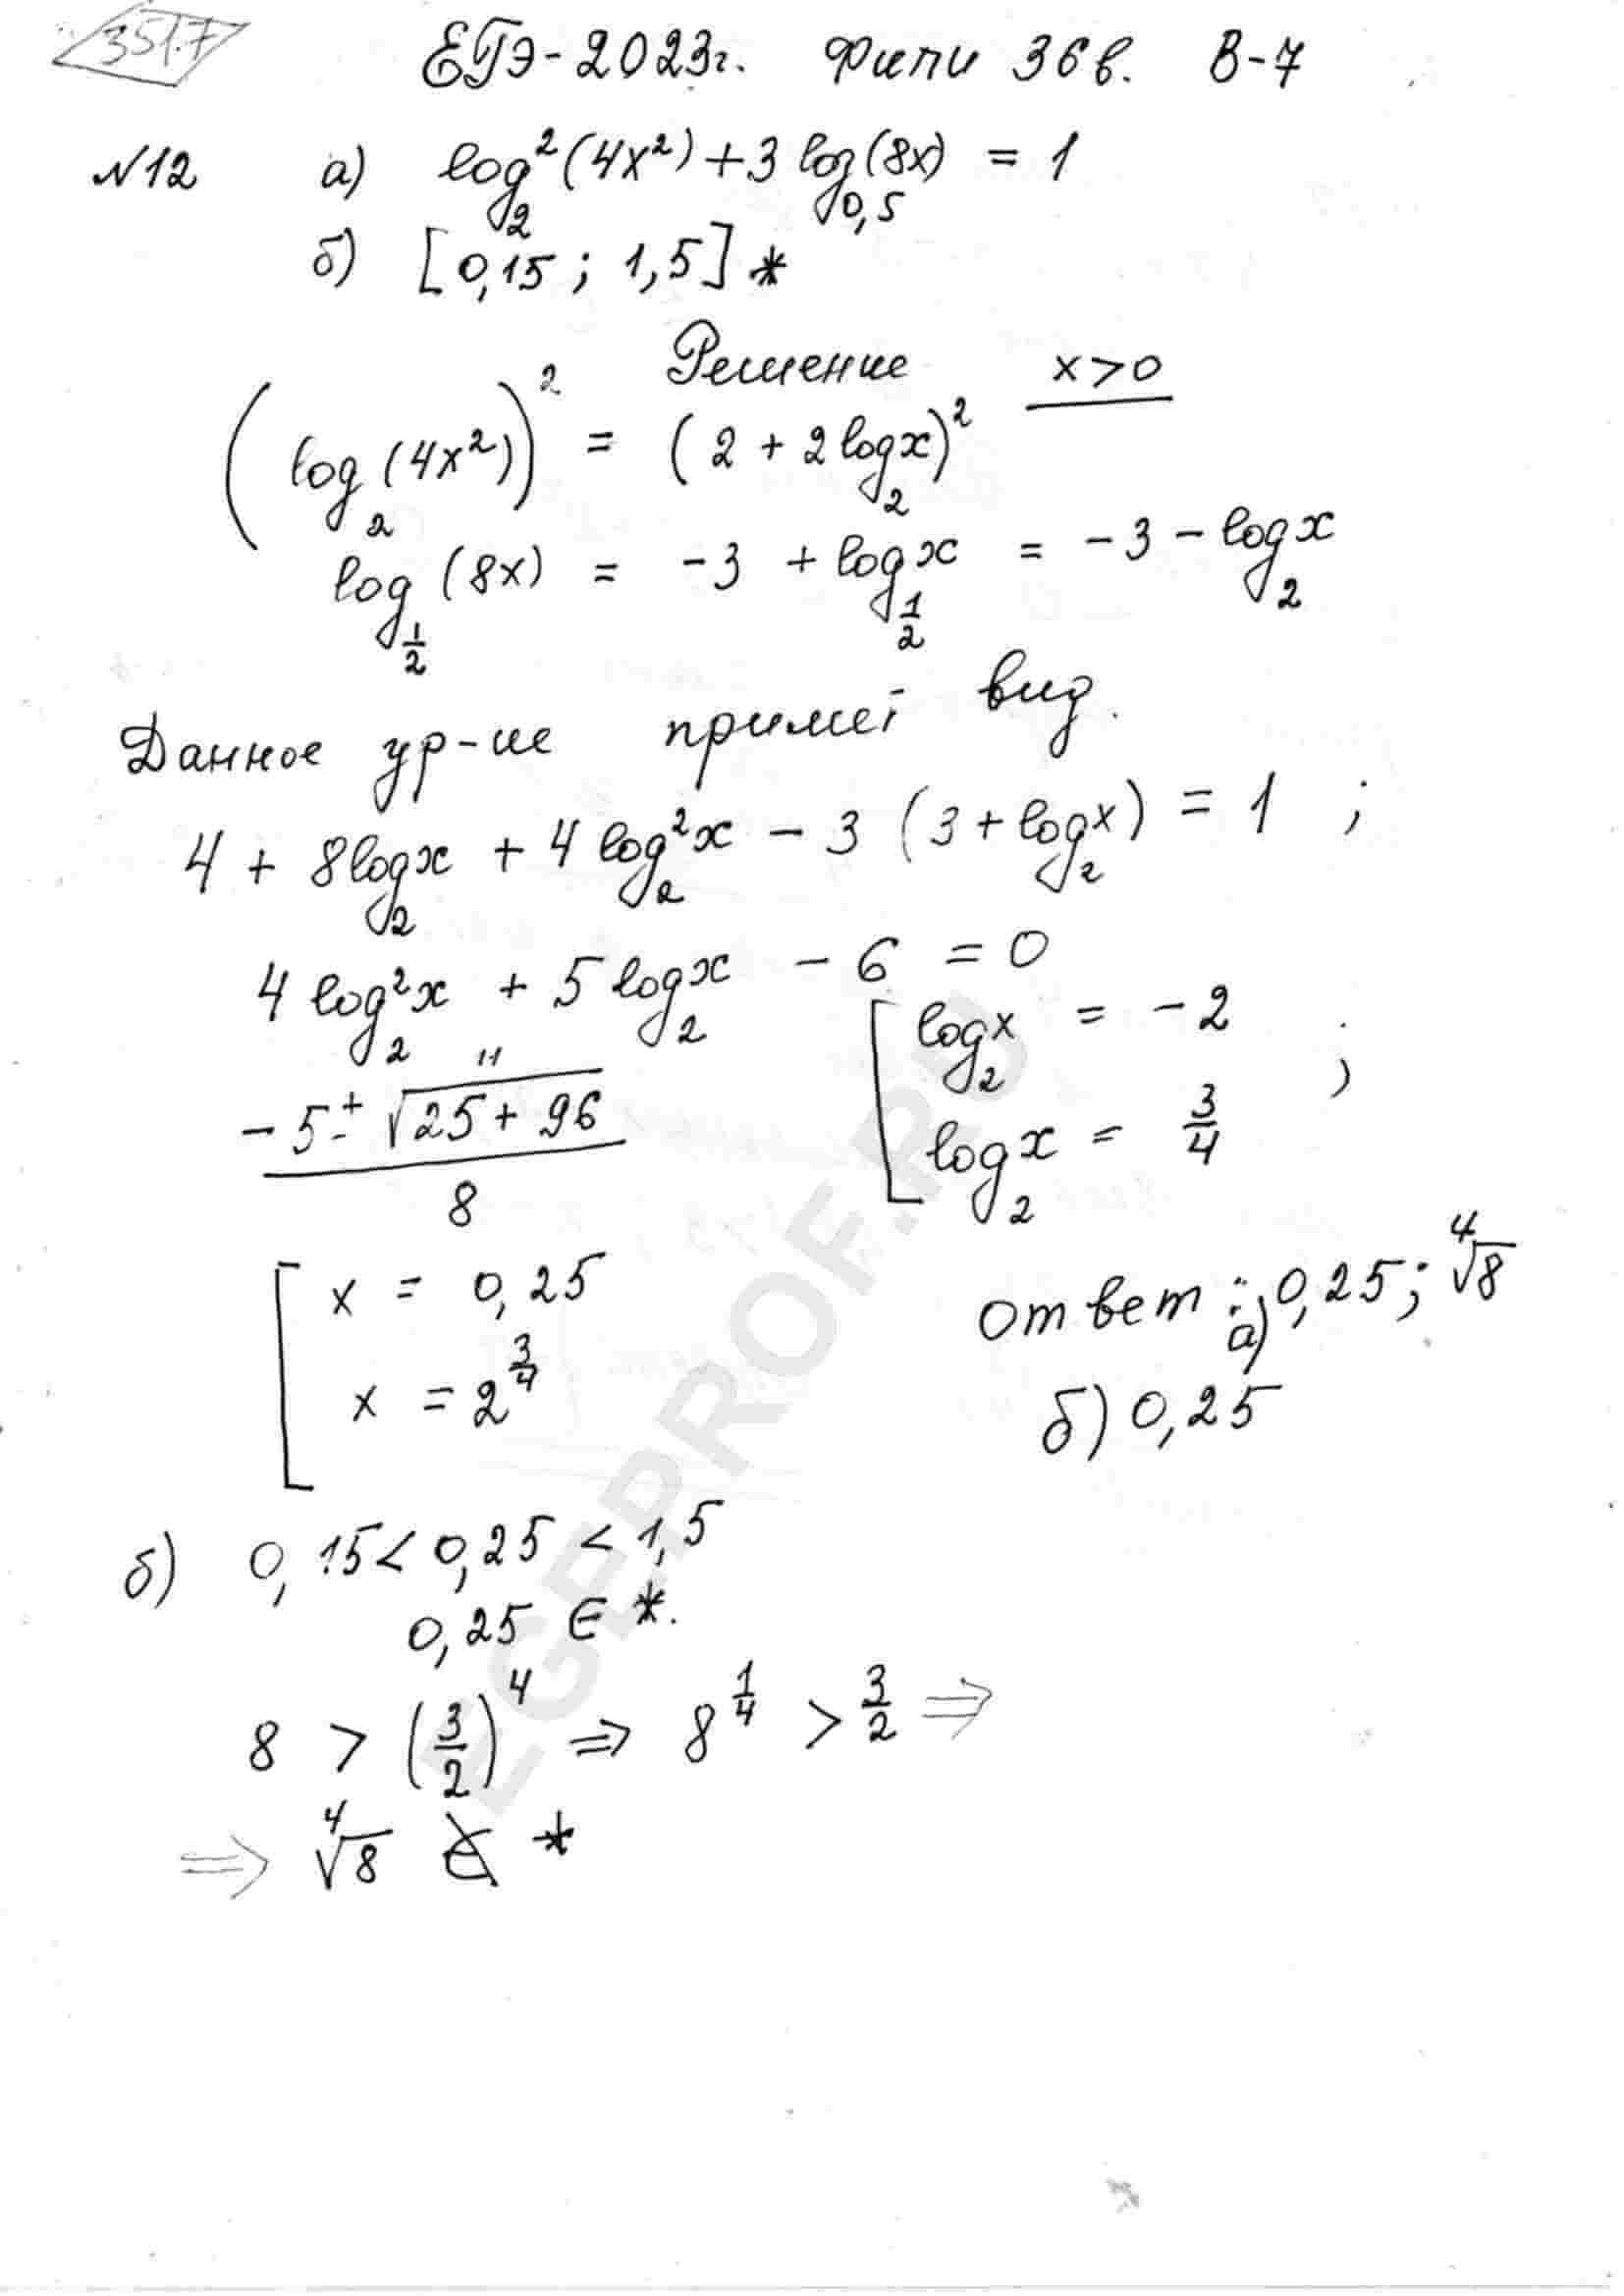 351.7
ЕГЭ-2023г. Фипи 36в. В-7
№12 а) log₂²(4x²)+3 log₀,₅(8x) = 1
б) [0,15 ; 1,5] *
Решение x>0
(log₂(4x²))² = (2 + 2log₂x)²
log_{1/2}(8x) = -3 + log_{1/2}x = -3 - log₂x
Данное ур-ие примет вид.
4 + 8log₂x + 4 log₂²x - 3 (3 + log₂x) = 1 ;
4 log₂²x + 5 log₂x - 6 = 0
(-5 ± √(25+96)) / 8 [ log₂x = -2
11 log₂x = 3/4 ;
[ x = 0,25
x = 2^{3/4}
ответ: а) 0,25; ⁴√8
б) 0,25
б) 0,15 < 0,25 < 1,5
0,25 ∈ *.
8 > (3/2)⁴ ⇒ 8^{1/4} > 3/2 ⇒
⇒ ⁴√8 ∉ *
EGEPROF.RU